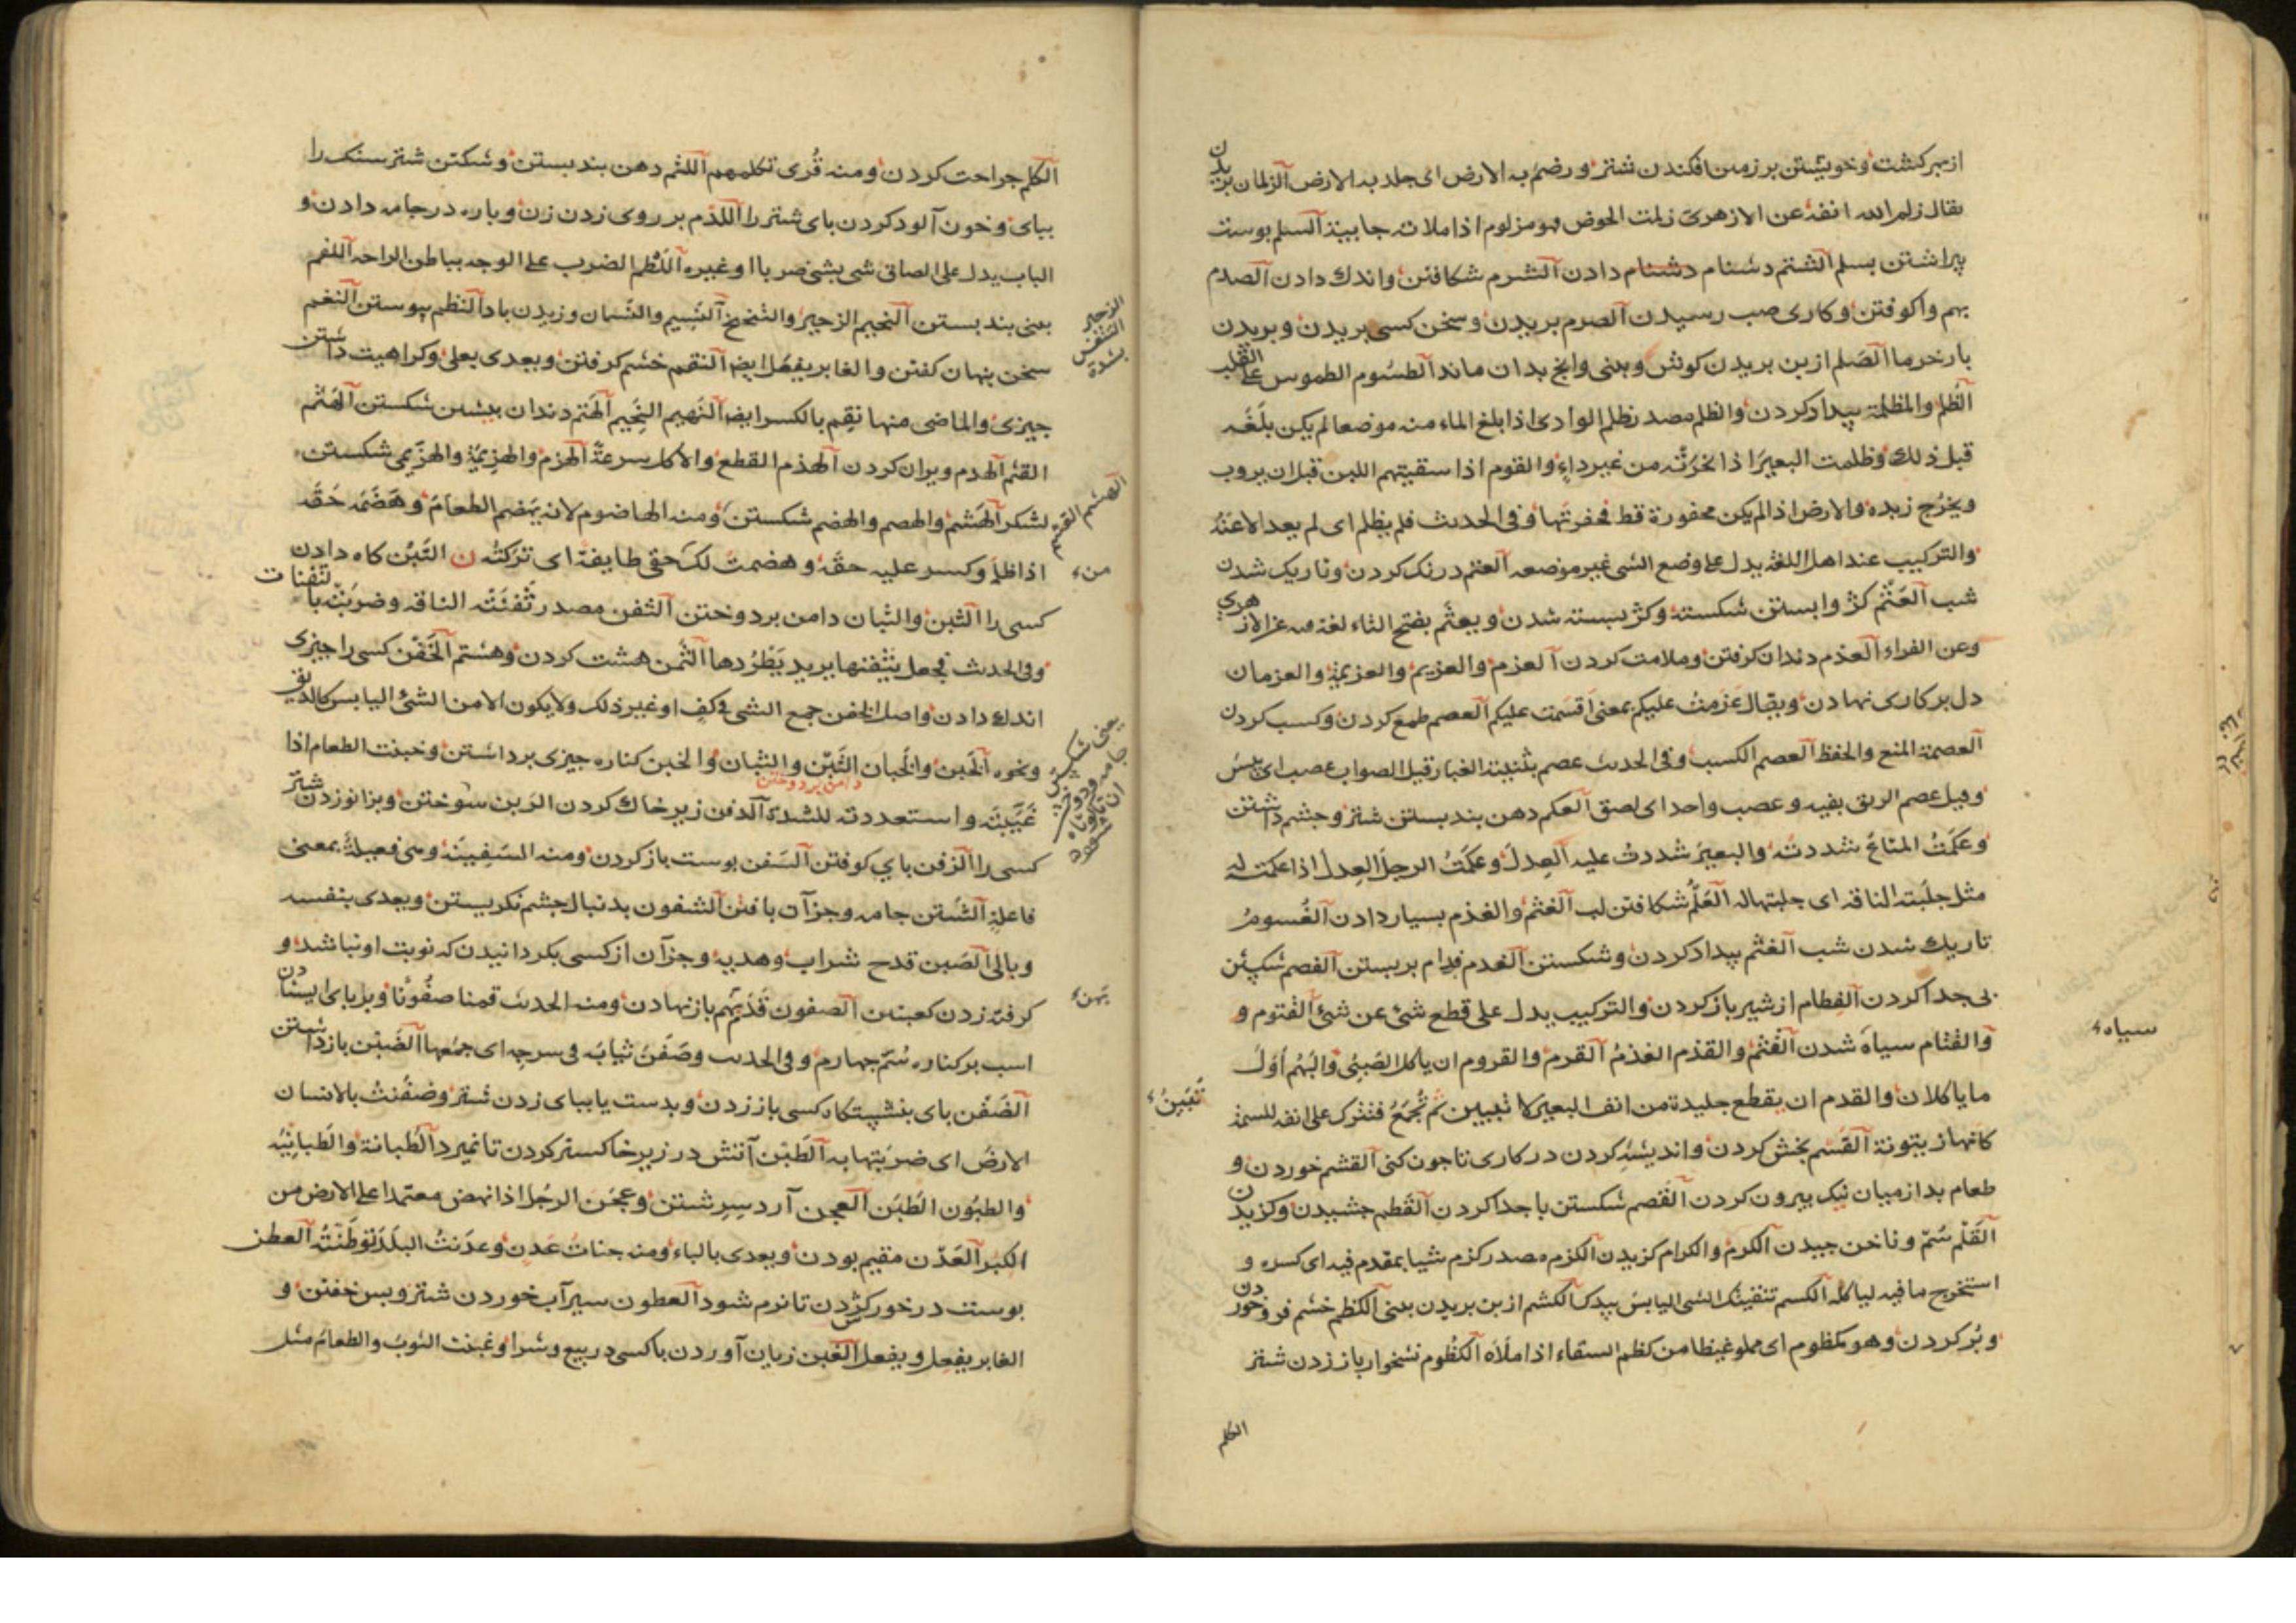 از بهر کشت وخویشتن بر زمین افکندن شتر ورضم به الارض ای جلد به الارض الزلمان بریدن
یقال زلم الله انفه عن الازهری زلمت الحوض فهو مزلوم اذا ملاته جابیة السلم پوست
پیراشتن بسلم الشتم دشنام دادن الشرم شکافتن واندک دادن الصدم
بهم واکوفتن وکاری صب رسیدن الصرم بریدن وسخن کسی بریدن وبریدن
بار خرما الصلم از بن بریدن کوش وبینی وانچ بدان ماند الطسوم الطموس علی القلب
الظلم والمظلمة بیدادکردن والظلم مصدر ظلم الوادی اذا بلغ الماء منه موضعا لم یکن بلغه
قبل ذلک وظلمت البعیر اذا نحرته من غیر داء والقوم اذا سقیتهم اللبن قبل ان یروب
ویخرج زبده والارض اذا لم یکن محفورة قط فحفرتها وفی الحدیث فلم یظلم ای لم یعدلا عنه
والترکیب عند اهل اللغة یدل علی وضع الشی غیر موضعه العتم درنک کردن وتاریک شدن
شب العثم کژ وابستن شکسته وکژ ببسته شدن ویعثم بفتح الثاء لغة فیه عن الازهری
وعن الفراء العذم دندان کرفتن وملامت کردن العزم والعزیم والعزیمة والعزمان
دل بر کاری نهادن ویقال عزمت علیکم بمعنی اقسمت علیکم العصم طمع کردن وکسب کردن
العصمة المنع والحفظ العصم الکسب وفی الحدیث عصم بثنیته الغبار قیل الصواب عصب ای یبس
وقیل عصم الریق بفیه وعصب واحد ای لصق العکم دهن بند بستن شتر وچشم داشتن
وعکمت المتاع شددته والبعیر شددت علیه العدل وعکمت الرجل العدل اذا عکمت له
مثل حلبته الناقة ای حلبتها له العلم شکافتن لب الغثم والغذم بسیار دادن الغسوم
تاریک شدن شب الغشم بیدادکردن وشکستن الفدم فدام بربستن الفصم شکستن
بی جدا کردن الفطام از شیر باز کردن والترکیب یدل علی قطع شئ عن شئ القتوم و
والقتام سیاه شدن القثم والقذم الغذم القرم والقروم ان یاکل الصبی والبهم اول
ما یاکلان والقدم ان یقطع جلیدة من انف البعیر لا تبیین ثم تجمع فتترک علی انفه للسمة
کانها زیتونة القسم بخش کردن واندیشه کردن در کاری تا چون کنی القشم خوردن و
طعام بد از میان نیک بیرون کردن القصم شکستن با جدا کردن القطم چشیدن وکزیدن
القلم سم وناخن چیدن الکرم والکرام کزیدن الکزم مصدر کزم شیا بمقدم فیه ای کسره و
استخرج ما فیه لیاکله الکسم تنقیتک الشی الیابس بیدک الکشم از بن بریدن بینی الکظم خشم فرو خوردن
وپر کردن وهو مکظوم ای مملو غیظا من کظم السقاء اذا ملاه الکظوم نشخوار باز زدن شتر
الکلم
سیاه
تبین
الکلم جراحت کردن ومنه قری تکلمهم اللثم دهن بند بستن وشکستن شتر سنک را
بپای وخون آلود کردن پای شتر را اللدم بر روی زدن زن وپاره در جامه دادن و
الباب یدل علی الصاق شی بشی ضربا او غیره اللطم الضرب علی الوجه بباطن الراحة اللفم
بعنی بند بستن النحیم الزحیر والتنحنح النسیم والنسمان وزیدن باد النظم پیوستن النغم
سخن پنهان کفتن والغابر یفعل ایضا النقم خشم کرفتن ویعدی بعلی وکراهیت داشتن
چیزی والماضی منها نقم بالکسر ایضا النهیم النحیم الهتم دندان پیشین شکستن الهثم
القثم الهدم ویران کردن الهذم القطع والاکل بسرعة الهزم والهزیمة والهزیمی شکستن
لشکر الهشم والهصم والهضم شکستن ومنه الهاضوم لانه یهضم الطعام وهضمه حقه
اذا ظلم وکسر علیه حقه وهضمت لک حقی طایفة ای ترکته ن التبن کاه دادن
کسی را الثبن والثبان دامن بردوختن الثفن مصدر ثفنته الناقة وضربته بالثفنات
وفی الحدیث فجعل یثفنها یرید یطردها الثمن هشت کردن وهشتم الحفن کسی را چیزی
اندک دادن واصل الحفن جمع الشی فی کف او غیر ذلک ولا یکون الا من الشئ الیابس کالدقیق
ونحوه الخبن والخبان الثبن والثبان والخبن کناره چیزی برداشتن وخبنت الطعام اذا
دامن بردوختن
غیبته واستعددته للشدة الدفن زیر خاک کردن الزبن سوختن وبزانو زدن شتر
کسی را الزفن پای کوفتن السفن پوست باز کردن ومنه السفینة وهی فعیلة بمعنی
فاعلة الشتن جامه وجز آن بافتن الشفون بدنبال چشم نکریستن ویعدی بنفسه
وبالی الصبن قدح شراب وهدیه وجز آن از کسی بکردانیدن که نوبت او نباشد و
کرفته زدن کعبتین الصفون قدمهم باز نهادن ومنه الحدیث قمنا صفونا وبر پای ایستادن
اسب بر کناره سم چهارم وفی الحدیث وصفن ثیابه فی سرجه ای جمعها الضبن بازداشتن
الضفن پای بنشیبتکاه کسی باز زدن وبدست یا بپای زدن شتر وضفنت بالانسان
الارض ای ضربتها به الطبن آتش در زیر خاکستر کردن تا نمیرد الطبانة والطبانیة
والطبون الطبن العجن آرد سرشتن وعجن الرجل اذا نهض معتمدا علی الارض من
الکبر العدن مقیم بودن ویعدی بالباء ومنه جنات عدن وعدنت البلد توطنته العطن
پوست در خورکژدن تا نرم شود العطون سیرآب خوردن شتر وپس خفتن و
الغابر یفعل ویفعل الغبن زیان آوردن با کسی در بیع وشرا وغبنت الثوب والطعام مثل
الزحیر
التنفس
بشدة
الهشم القوم
من
یعنی شکستن
جامه ودوختن
ان تا کوتاه
شود